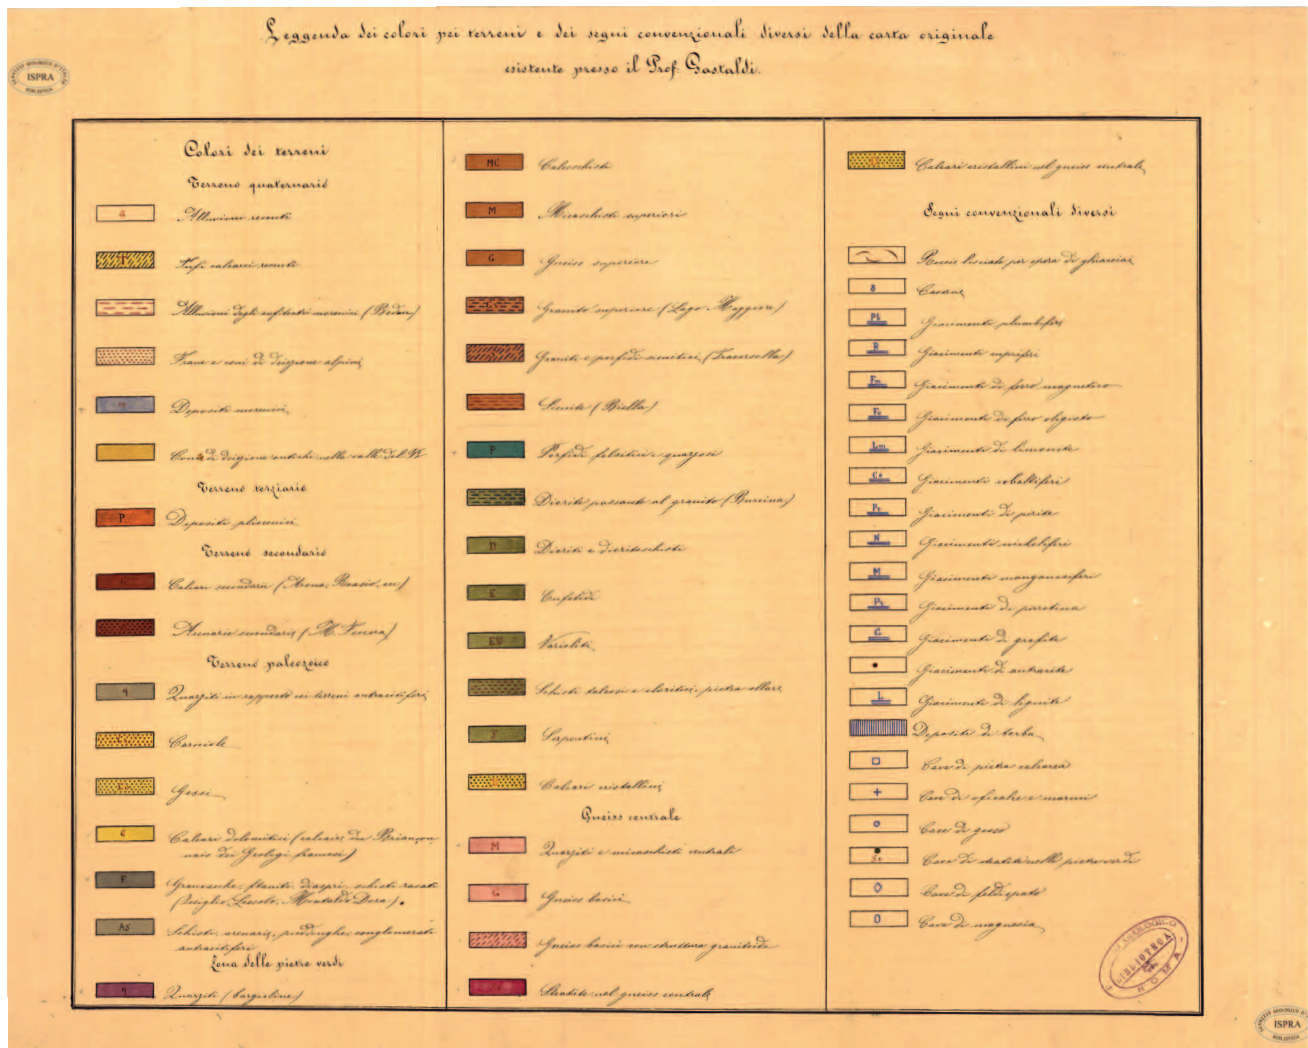 Leggenda dei colori pei terreni e dei segni convenzionali diversi della carta originale
esistente presso il Prof. Gastaldi.
ISPRA
Colori dei terreni
Terreno quaternario
a Alluvioni recenti
Tufi calcarei recenti
Alluvioni degli anfiteatri morenici (Bidon)
Frane e coni di deiezione alpini
Depositi morenici
Coni di deiezione antichi nella valle del Po
Terreno terziario
P Depositi pliocenici
Terreno secondario
Calcari secondarii (Arona, Bozzio, ecc.)
Arenarie secondarie (M. Fenera)
Terreno paleozoico
q Quarziti in rapporto coi terreni antracitiferi
Carniole
Gessi
c Calcari dolomitici (calcaire du Briançon-
nais dei Geologi francesi)
F Grauvacke, ftaniti, diaspri, schisti rasati
(Issiglio, Lessolo, Montaldo Dora).
AS Schisti, arenarie, pudinghe, conglomerati
antracitiferi
Zona delle pietre verdi
q Quarziti (bargioline)
MC Calceschisti
M Micaschisti superiori
G Gneiss superiore
Granito superiore (Lago Maggiore)
Graniti e porfidi sienitici (Traversella)
Sienite (Biella)
P Porfidi felsitici e quarzosi
Diorite passante al granito (Burcina)
D Dioriti e dioriteschisti
E Eufotidi
EV Varioliti
Schisti talcosi e cloritici, pietra ollare
S Serpentini
Calcari cristallini
Gneiss centrale
M Quarziti e micaschisti centrali
G Gneiss basici
Gneiss basici con struttura granitoide
Steatite nel gneiss centrale
Calcari cristallini nel gneiss centrale
Segni convenzionali diversi
Roccie lisciate per opera di ghiacciai
8 Caverne
Pb Giacimenti plumbiferi
R Giacimenti cupriferi
Fm Giacimenti di ferro magnetico
Fo Giacimenti di ferro oligisto
Lm Giacimenti di limonite
Co Giacimenti cobaltiferi
Pr Giacimenti di pirite
N Giacimenti nicheliferi
M Giacimenti manganesiferi
Pt Giacimenti di pirrotina
G Giacimenti di grafite
Giacimenti di antracite
L Giacimenti di lignite
Depositi di torba
Cave di pietra calcarea
Cave di oficalce e marmi
Cave di gesso
Cave di steatite nelle pietre verdi
Cave di feldispato
Cave di magnesia
BIBLIOTECA
ROMA
ISPRA